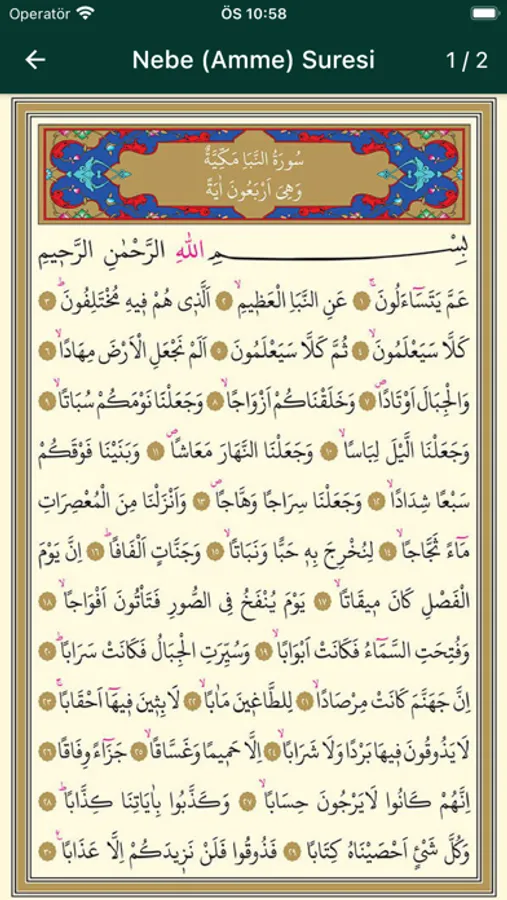 Operatör ÖS 10:58
Nebe (Amme) Suresi 1 / 2
سُورَةُ النَّبَأِ مَكِّيَّةٌ
وَهِيَ اَرْبَعُونَ اٰيَةً
بِسْمِ اللّٰهِ الرَّحْمٰنِ الرَّحٖيمِ
عَمَّ يَتَسَٓاءَلُونَۚ ﴿١﴾ عَنِ النَّبَأِ الْعَظٖيمِۙ ﴿٢﴾ اَلَّذٖى هُمْ فٖيهِ مُخْتَلِفُونَۜ ﴿٣﴾
كَلَّا سَيَعْلَمُونَۙ ﴿٤﴾ ثُمَّ كَلَّا سَيَعْلَمُونَ ﴿٥﴾ اَلَمْ نَجْعَلِ الْاَرْضَ مِهَادًاۙ ﴿٦﴾
وَالْجِبَالَ اَوْتَادًاۖ ﴿٧﴾ وَخَلَقْنَاكُمْ اَزْوَاجًاۙ ﴿٨﴾ وَجَعَلْنَا نَوْمَكُمْ سُبَاتًاۙ ﴿٩﴾
وَجَعَلْنَا الَّيْلَ لِبَاسًاۙ ﴿١٠﴾ وَجَعَلْنَا النَّهَارَ مَعَاشًاۖ ﴿١١﴾ وَبَنَيْنَا فَوْقَكُمْ
سَبْعًا شِدَادًاۙ ﴿١٢﴾ وَجَعَلْنَا سِرَاجًا وَهَّاجًاۖ ﴿١٣﴾ وَاَنْزَلْنَا مِنَ الْمُعْصِرَاتِ
مَٓاءً ثَجَّاجًاۙ ﴿١٤﴾ لِنُخْرِجَ بِهٖ حَبًّا وَنَبَاتًاۙ ﴿١٥﴾ وَجَنَّاتٍ اَلْفَافًاۜ ﴿١٦﴾ اِنَّ يَوْمَ
الْفَصْلِ كَانَ مٖيقَاتًاۙ ﴿١٧﴾ يَوْمَ يُنْفَخُ فِى الصُّورِ فَتَأْتُونَ اَفْوَاجًاۙ ﴿١٨﴾
وَفُتِحَتِ السَّمَٓاءُ فَكَانَتْ اَبْوَابًاۙ ﴿١٩﴾ وَسُيِّرَتِ الْجِبَالُ فَكَانَتْ سَرَابًاۜ ﴿٢٠﴾
اِنَّ جَهَنَّمَ كَانَتْ مِرْصَادًاۙ ﴿٢١﴾ لِلطَّاغٖينَ مَاٰبًاۙ ﴿٢٢﴾ لَابِثٖينَ فٖيهَٓا اَحْقَابًاۚ ﴿٢٣﴾
لَا يَذُوقُونَ فٖيهَا بَرْدًا وَلَا شَرَابًاۙ ﴿٢٤﴾ اِلَّا حَمٖيمًا وَغَسَّاقًاۙ ﴿٢٥﴾ جَزَٓاءً وِفَاقًاۜ ﴿٢٦﴾
اِنَّهُمْ كَانُوا لَا يَرْجُونَ حِسَابًاۙ ﴿٢٧﴾ وَكَذَّبُوا بِاٰيَاتِنَا كِذَّابًاۜ ﴿٢٨﴾
وَكُلَّ شَیْءٍ اَحْصَيْنَاهُ كِتَابًاۙ ﴿٢٩﴾ فَذُوقُوا فَلَنْ نَزٖيدَكُمْ اِلَّا عَذَابًاۚ ﴿٣٠﴾